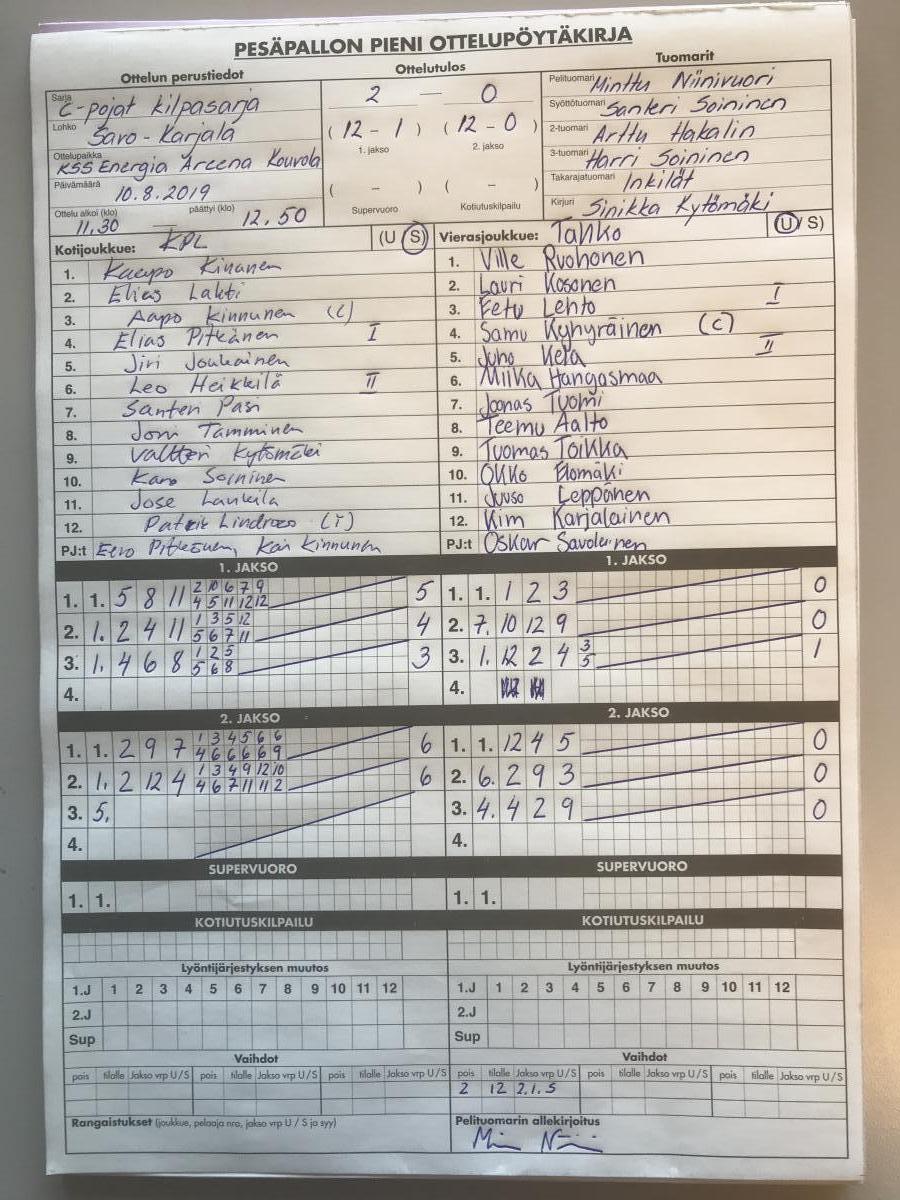 PESÄPALLON PIENI OTTELUPÖYTÄKIRJA
Ottelun perustiedot
Sarja C-pojat kilpasarja
Lohko Savo-Karjala
Ottelupaikka KSS Energia Areena Kouvola
Päivämäärä 10.8.2019
Ottelu alkoi (klo) 11.30 — päättyi (klo) 12.50
Ottelutulos
2 — 0
(12 - 1) (12 - 0)
1. jakso 2. jakso
( - ) ( - )
Supervuoro Kotiutuskilpailu
Tuomarit
Pelituomari Minttu Niinivuori
Syöttötuomari Santeri Soininen
2-tuomari Arttu Hakalin
3-tuomari Harri Soininen
Takarajatuomari Inkilät
Kirjuri Sinikka Kytömäki
Kotijoukkue: KPL (U S)
1. Kaapo Kinanen
2. Elias Lahti
3. Aapo Kinnunen (c)
4. Elias Pitkänen I
5. Jiri Joukainen
6. Leo Heikkilä II
7. Santeri Pasi
8. Joni Tamminen
9. Valtteri Kytömäki
10. Karo Soininen
11. Jose Laukila
12. Patrik Lindroos (T)
PJ:t Eero Pitkänen, Kai Kinnunen
Vierasjoukkue: Tahko (U/S)
1. Ville Ruohonen
2. Lauri Kosonen
3. Eetu Lehto I
4. Samu Kyhyräinen (C)
5. Juho Kela II
6. Miika Hangasmaa
7. Joonas Tuomi
8. Teemu Aalto
9. Tuomas Toikka
10. Okko Elomäki
11. Juuso Leppänen
12. Kim Karjalainen
PJ:t Oskar Savolainen
1. JAKSO
1. 1. 5 8 11 2 10 6 7 9 5
4 5 11 12 12
2. 1. 2 4 11 1 3 5 12 4
5 6 7 11
3. 1. 4 6 8 1 2 5 3
5 6 8
4.
1. JAKSO
1. 1. 1 2 3 0
2. 7. 10 12 9 0
3. 1. 12 2 4 3 1
5
4.
2. JAKSO
1. 1. 2 9 7 1 3 4 5 6 6 6
4 6 6 6 6 9
2. 1. 2 12 4 1 3 4 9 12 10 6
4 6 7 11 11 2
3. 5.
4.
2. JAKSO
1. 1. 12 4 5 0
2. 6. 2 9 3 0
3. 4. 4 2 9 0
4.
SUPERVUORO
1. 1.
SUPERVUORO
1. 1.
KOTIUTUSKILPAILU
KOTIUTUSKILPAILU
Lyöntijärjestyksen muutos
1.J 1 2 3 4 5 6 7 8 9 10 11 12
2.J
Sup
Lyöntijärjestyksen muutos
1.J 1 2 3 4 5 6 7 8 9 10 11 12
2.J
Sup
Vaihdot
pois tilalle Jakso vrp U/S pois tilalle Jakso vrp U/S pois tilalle Jakso vrp U/S
Vaihdot
pois tilalle Jakso vrp U/S pois tilalle Jakso vrp U/S pois tilalle Jakso vrp U/S
2 12 2.1.S
Rangaistukset (joukkue, pelaaja nro, jakso vrp U / S ja syy)
Pelituomarin allekirjoitus